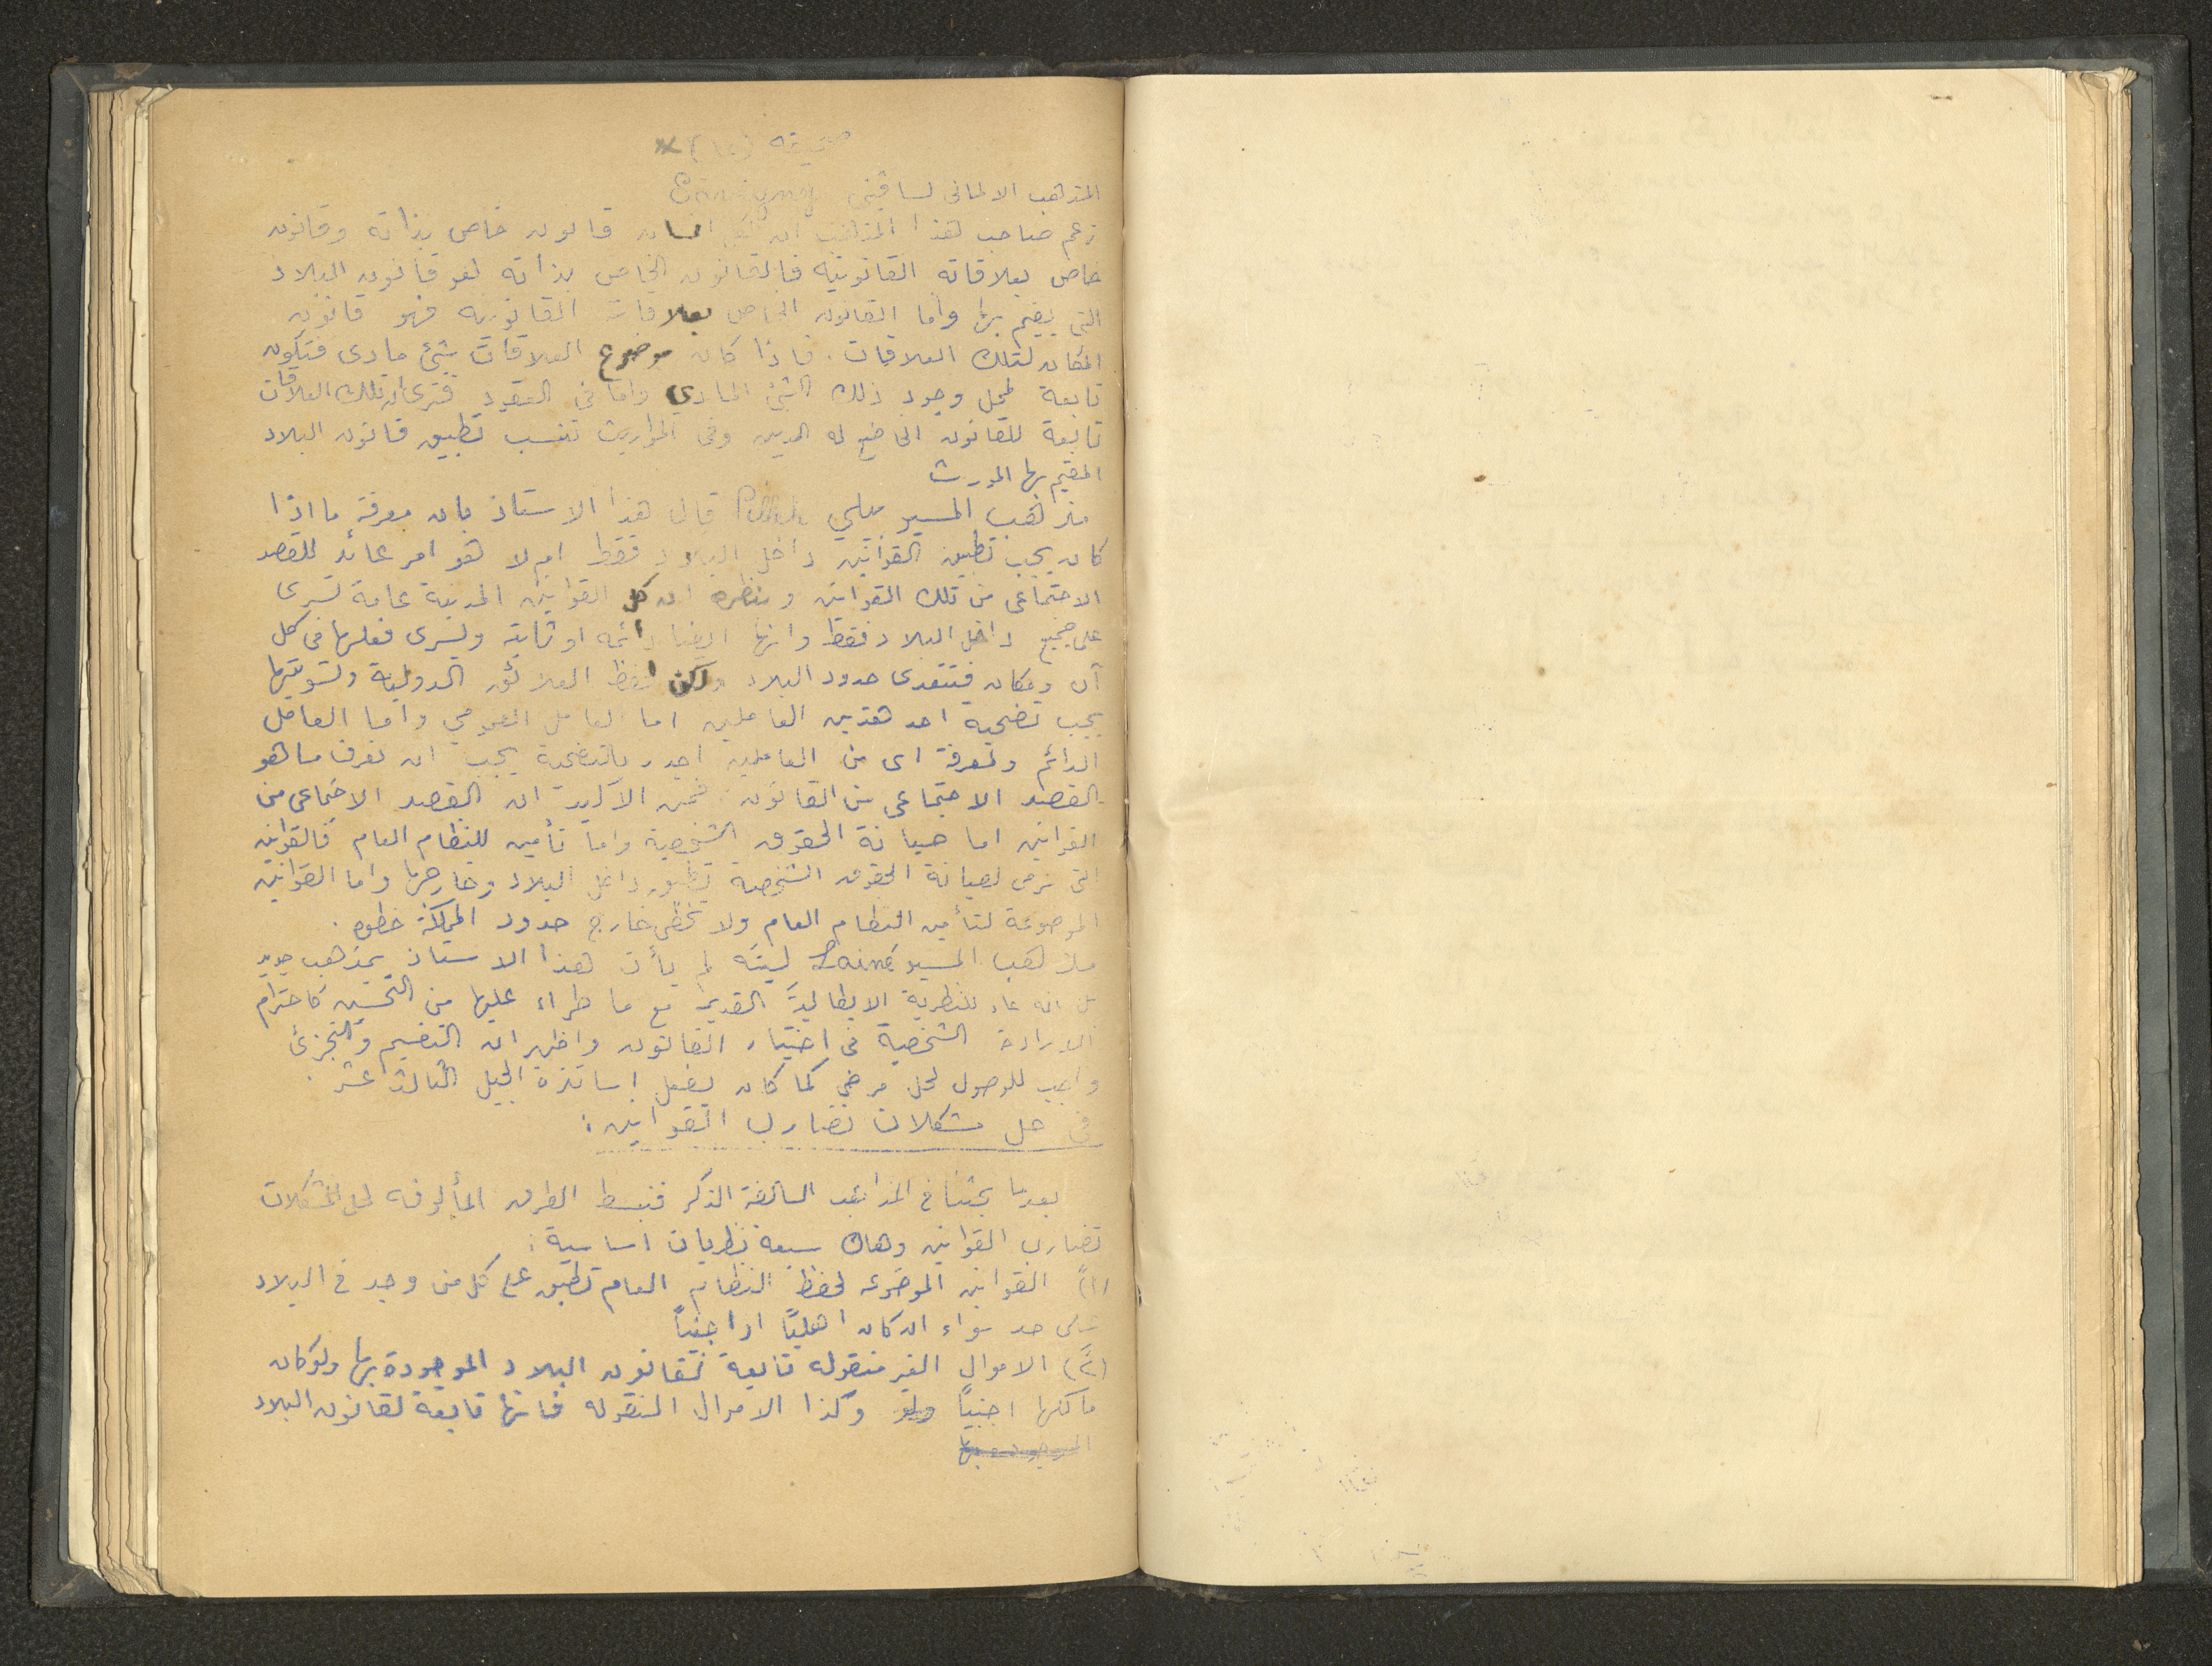 صحيفه (١٤)
المذهب الالماني لساڤيني
زعم صاحب هذا المذهب ان لكل انسان قانون خاص بذاته وقانون
خاص بعلاقاته القانونية فالقانون الخاص بذاته هو قانون البلاد
التي يقيم بها واما القانون الخاص بعلاقات القانونيه فهو قانون
المكان لتلك العلاقات . فاذا كان موضوع العلاقات شئ مادي فتكون
تابعة لمحل وجود ذلك الشئ المادي واما في العقود فترى ان تلك العلاقات
تابعة للقانون الخاضع له المدين وفي المواريث تنسب تطبيق قانون البلاد
المقيم بها المورث
مذهب المسيو بيلي Pillet قال هذا الاستاذ بان معرفة ما اذا
كان يجب تطبيق القوانين داخل البلاد فقط ام لا هو امر عائد للقصد
الاجتماعي من تلك القوانين وبنظره ان كل القوانين المدنية عامة تسرى
على جميع داخل البلاد فقط وانها ايضا دائمه او ثابته ويسرى فعلها في كل
آن ومكان فتتعدى حدود البلاد ولكن لحفظ العلائق الدولية وتسويتها
يجب تضحية احد هذين العاملين اما العامل العمومي واما العامل
الدائم ولمعرفة اى من العاملين اجدر بالتضحية يجب ان نعرف ما هو
القصد الاجتماعى من القانون فمن الاكيد ان القصد الاجتماعى من
القوانين اما صيانة الحقوق الشخصية واما تأمين للنظام العام فالقوانين
التي ترمى لصيانة الحقوق الشخصية تطبق داخل البلاد وخارجها واما القوانين
الموضوعة لتأمين النظام العام ولا تخطى خارج حدود المملكة خطوه .
مذهب المسيو Lainé لينه لم يأت هذا الاستاذ بمذهب جديد
بل انه عاد للنظرية الايطالية القديمة مع ما طراء عليها من التحسين كاحترام
الارادة الشخصية في اختيار القانون واظهر ان التقسيم والتجزئ
واجب للوصول لحل مرضي كما كان يفعل اساتذة الجيل الثالث عشر .
في حل مشكلات تضارب القوانين :
بعدما بحثنا في المذاهب السالفة الذكر فنبسط الطرق المألوفه لحل المشكلات
تضارب القوانين وهاك سبعة نظريات اساسية :
(١) القوانين الموضوعه لحفظ النظام العام تطبق على كل من وجد في البلاد
على حد سواء ان كان اهليًا او اجنبيًا
(٢) الاموال الغير منقوله تابعة لقانون البلاد الموجودة بها ولو كان
مالكها اجنبيًا ولو وكذا الاموال المنقوله فانها تابعة لقانون البلاد
الموجوده بها